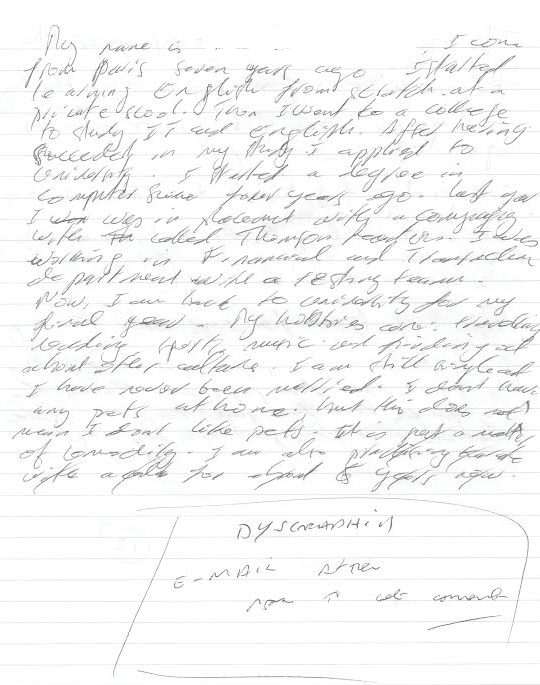 My name is I come
from paris seven years ago. I started
learning English from scratch at a
private scool. Then I went to a college
to study IT and english. After having
succeded in my study I applied to
university. I started a degree in
computer years ago. last year
I was in placement with a company
with called Thomson Reuters. I was
working in Financial and Transaction
department with a testing team.
Now, I am back to university for my
final year. My hobbies are. travelling
reading sport, music and finding out
about other culture. I am still
I have never been married. I dont have
any pets at home. but this does not
mean I dont like pets. It is just a matter
of I am also practicing karate
with a for about 5 years now.
DYSGRAPHIA
E-MAIL
comment